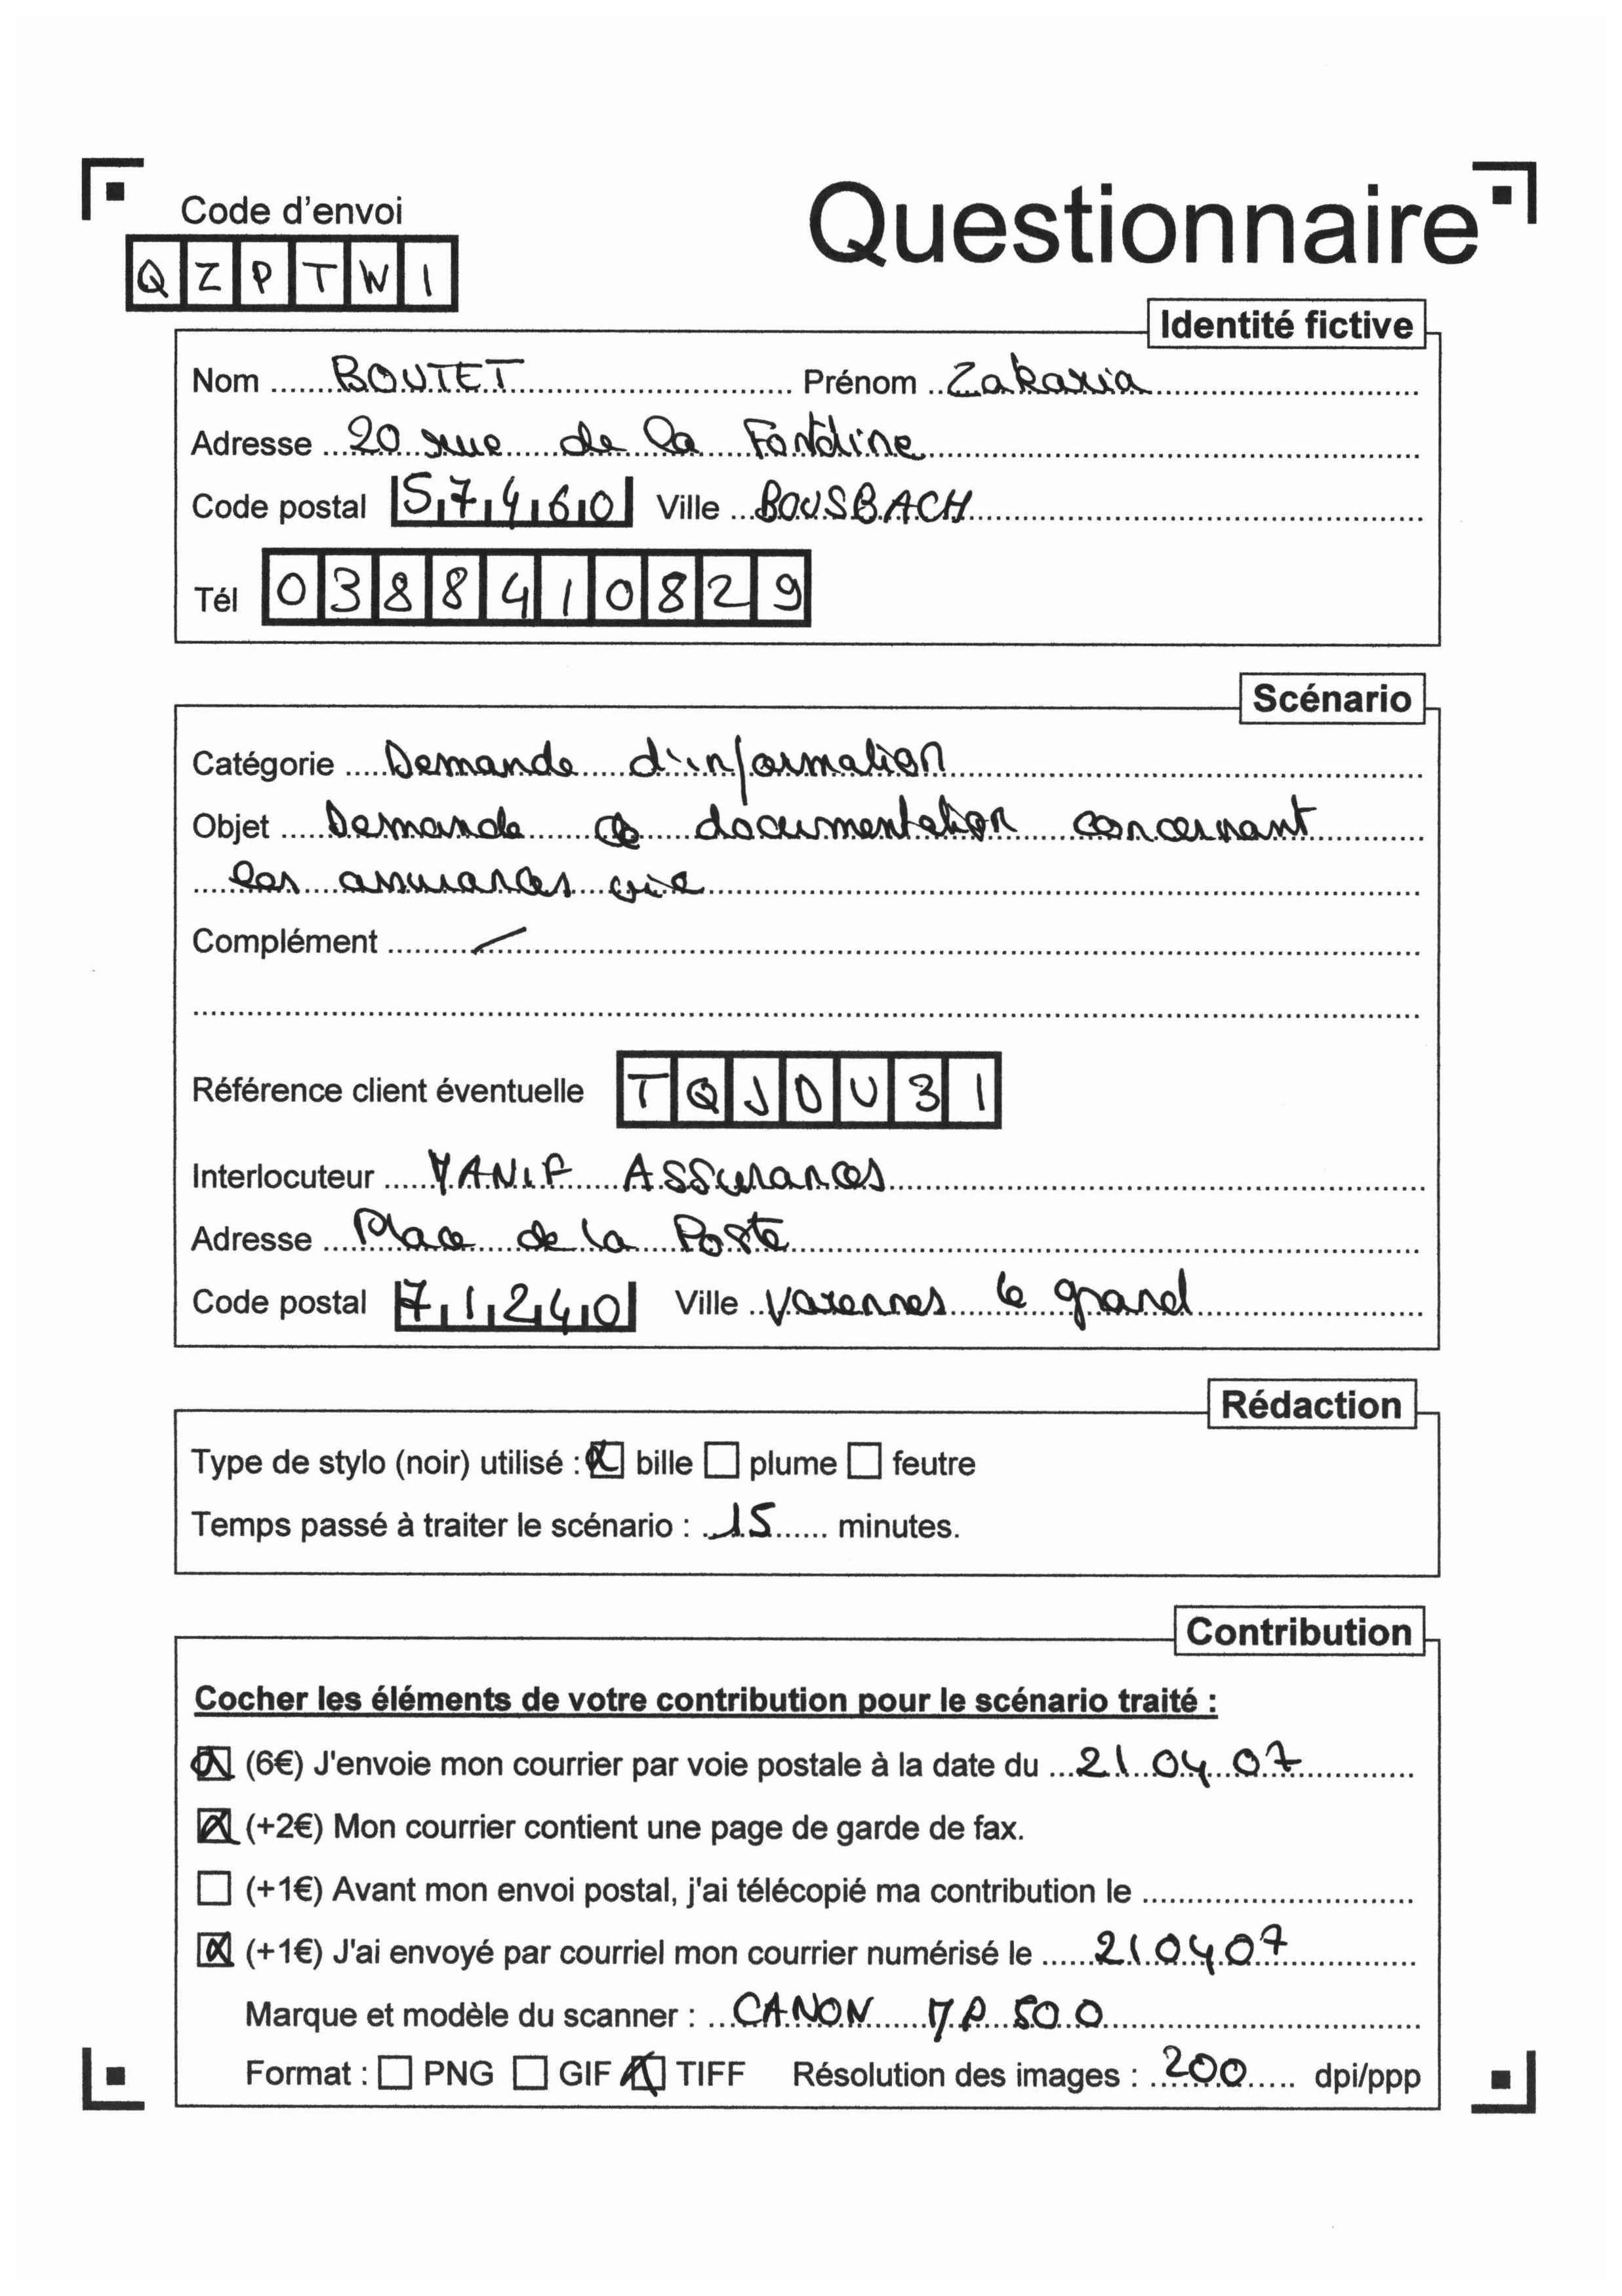 Code d'envoi
Questionnaire
QZPTWI
Identité fictive
Nom BOUTET Prénom Zakaria
Adresse 20 rue de la Fontaine
Code postal 57460 Ville BOUSBACH
Tél 0388410829
Scénario
Catégorie Demande d'information
Objet Demande de documentation concernant
les assurances vie
Complément /
Référence client éventuelle TQJDU31
Interlocuteur Assurances
Adresse Place de la Poste
Code postal 71240 Ville Varennes le grand
Rédaction
Type de stylo (noir) utilisé : bille plume feutre
Temps passé à traiter le scénario : 15 minutes.
Contribution
Cocher les éléments de votre contribution pour le scénario traité :
(6€) J'envoie mon courrier par voie postale à la date du 21 04 07
(+2€) Mon courrier contient une page de garde de fax.
(+1€) Avant mon envoi postal, j'ai télécopié ma contribution le
(+1€) J'ai envoyé par courriel mon courrier numérisé le 210407
Marque et modèle du scanner : CANON MP 500
Format : PNG GIF TIFF Résolution des images : 200 dpi/ppp